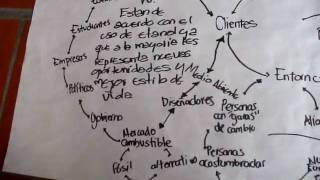 Estan de
acuerdo con el
uso de etanol ya
que a la mayoria les
representa nuevas
oportunidades y un
mejor estilo de
vida
Clientes
Estudiantes
Empresas
Politicos
Gobierno
Mercado
combustible
Fosil
Diseñadores
Medio Ambiente
Personas
con "ganas"
de cambio
Personas
acostumbradas